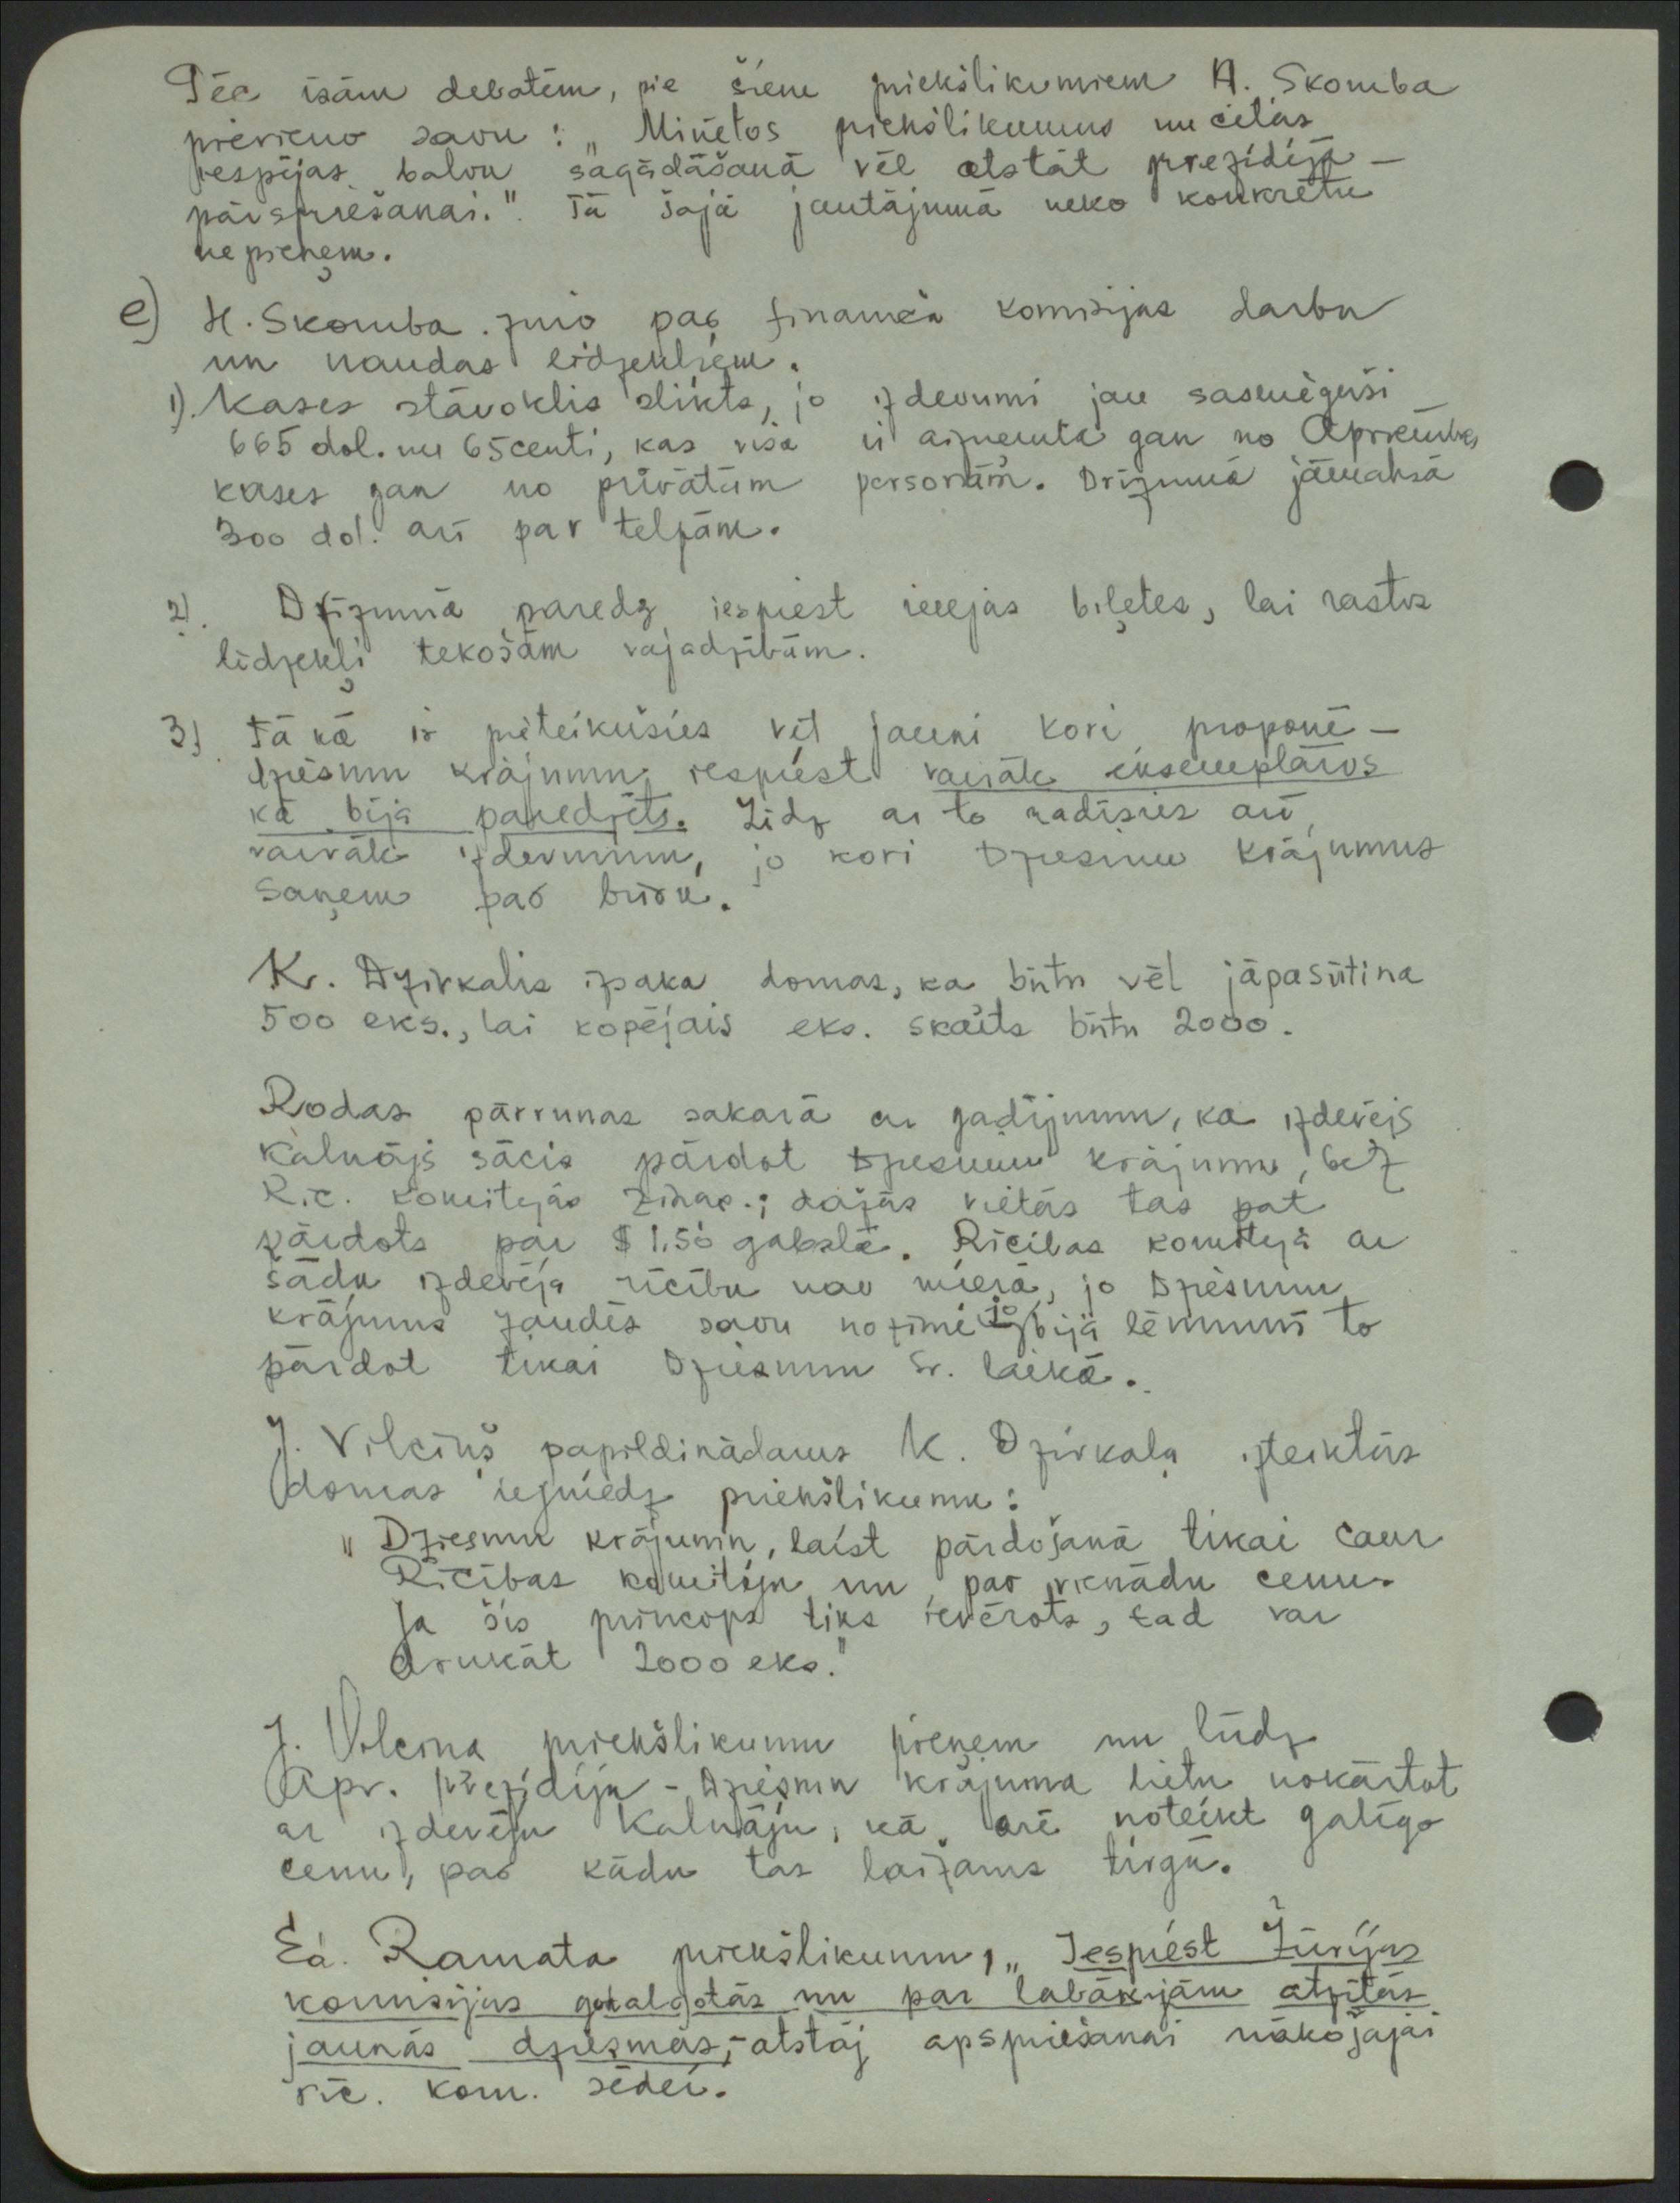 Pēc īsām debatēm, pie šiem priekšlikumiem A. Skomba
pievieno savu: „Minētos priekšlikumus un citas
iespējas balvu sagādāšanā vēl atstāt prezidija
pārspriešanai." Tā šajā jautājumā neko konkrētu
nepieņem.
e) H. Skomba ziņo par finanču komisijas darbu
un naudas līdzekļiem.
1). Kases stāvoklis slikts, jo izdevumi jau sasnieguši
665 dol. un 65 centi, kas visa ir aizņemta gan no Apriņķa
kases gan no privātām personām. Drīzumā jāmaksā
300 dol. arī par telpām.
2). Drīzumā paredz iespiest ieejas biļetes, lai rastos
līdzekļi tekošām vajadzībām.
3) Tā kā ir pieteikušies vēl jauni kori, proponē –
dziesmu krājumu iespiest vairāk eksemplāros
kā bija paredzēts. Līdz ar to radīsies arī
vairāk izdevumu, jo kori Dziesmu krājumus
saņem par brīvu.
Kr. Dzirkalis izsaka domas, ka būtu vēl jāpasūtina
500 eks., lai kopējais eks. skaits būtu 2000.
Rodas pārrunas sakarā ar gadījumu, ka izdevējs
Kalnājs sācis pārdot Dziesmu krājumu, bez
Rīc. komitejas ziņas.; dažās vietās tas pat
pārdots par $ 1.50 gabalā. Rīcības komiteja ar
šādu izdevēja rīcību nav mierā, jo Dziesmu
krājums zaudēs savu nozīmi jo bija lēmums to
pārdot tikai Dziesmu Sv. laikā.
J. Vilciņš papildinādams K. Dzirkaļa izteiktās
domas iesniedz priekšlikumu:
„Dziesmu krājumu, laist pārdošanā tikai caur
Rīcības komiteju un par vienādu cenu.
Ja šis princips tiks ievērots, tad var
drukāt 2000 eks."
J. Vilciņa priekšlikumu pieņem un lūdz
Apr. prezidiju - Dziesmu krājuma lietu nokārtot
ar izdevēju Kalnāju, kā arī noteikt galīgo
cenu, par kādu tas laižams tirgū.
Ed. Ramata priekšlikumu, „Iespiest Žūrijas
komisijas godalgotās un par labākajām atzītās
jaunās dziesmas,- atstāj apspriešanai nākošajai
rīc. kom. sēdei.